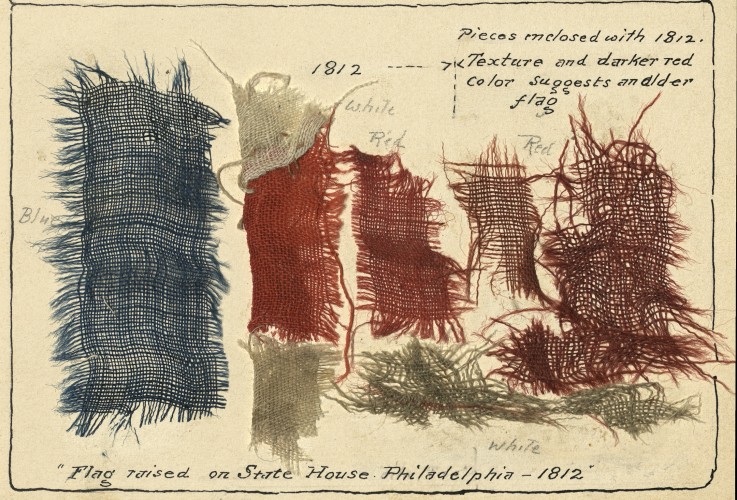 Pieces enclosed with 1812.
1812 ---- Texture and darker red
color suggests an older
flag
White
Red
Red
Blue
White
"Flag raised on State House Philadelphia - 1812"